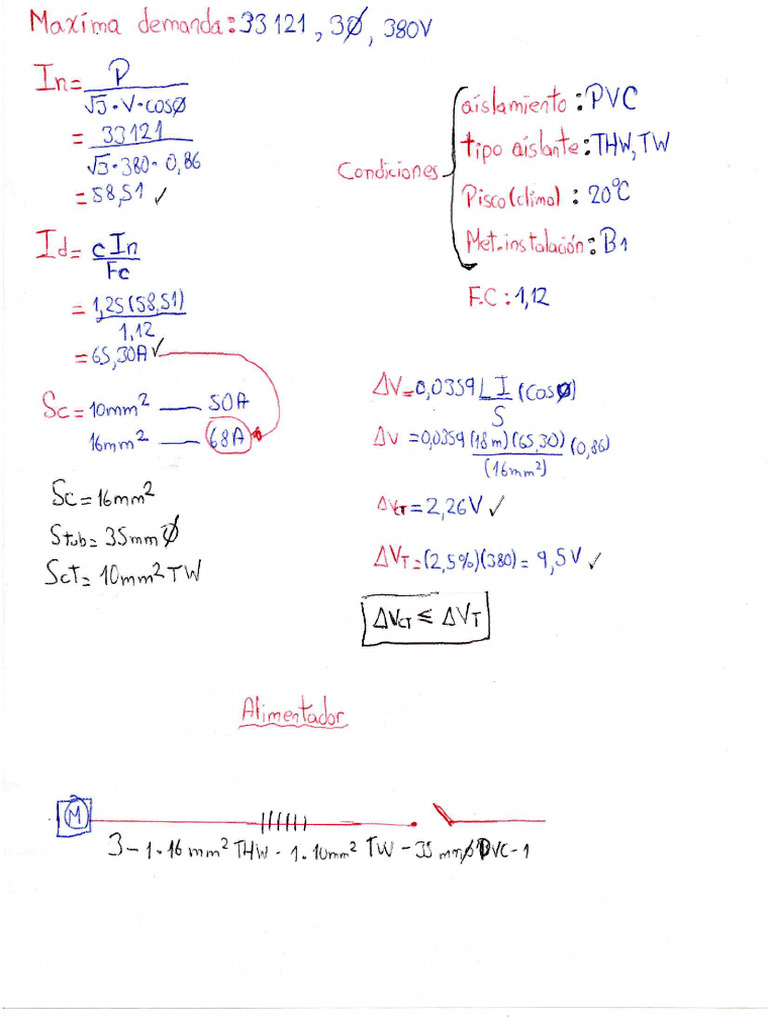 Maxíma demanda: 33121, 3Ø, 380V
In= P
√3·V·cosØ
= 33121
√3·380·0,86
= 58,51 ✓
Condiciones
aislamiento: PVC
tipo aislante: THW, TW
Pisco(clima) : 20°C
Met.instalación: B1
F.C: 1,12
Id= cIn
Fc
= 1,25(58,51)
1,12
= 65,30A ✓
Sc= 10mm² — 50A
16mm² — 68A
Sc= 16mm²
Stub= 35mmØ
SCT= 10mm² TW
ΔV=0,0359 L I (cosØ)
S
ΔV =0,0359(18m)(65,30)(0,86)
(16mm²)
ΔVCT = 2,26V ✓
ΔVT=(2,5%)(380)= 9,5V ✓
ΔVCT ≤ ΔVT
Alimentador
M
3-1·16mm² THW-1·10mm² TW-35mmØ PVC-1